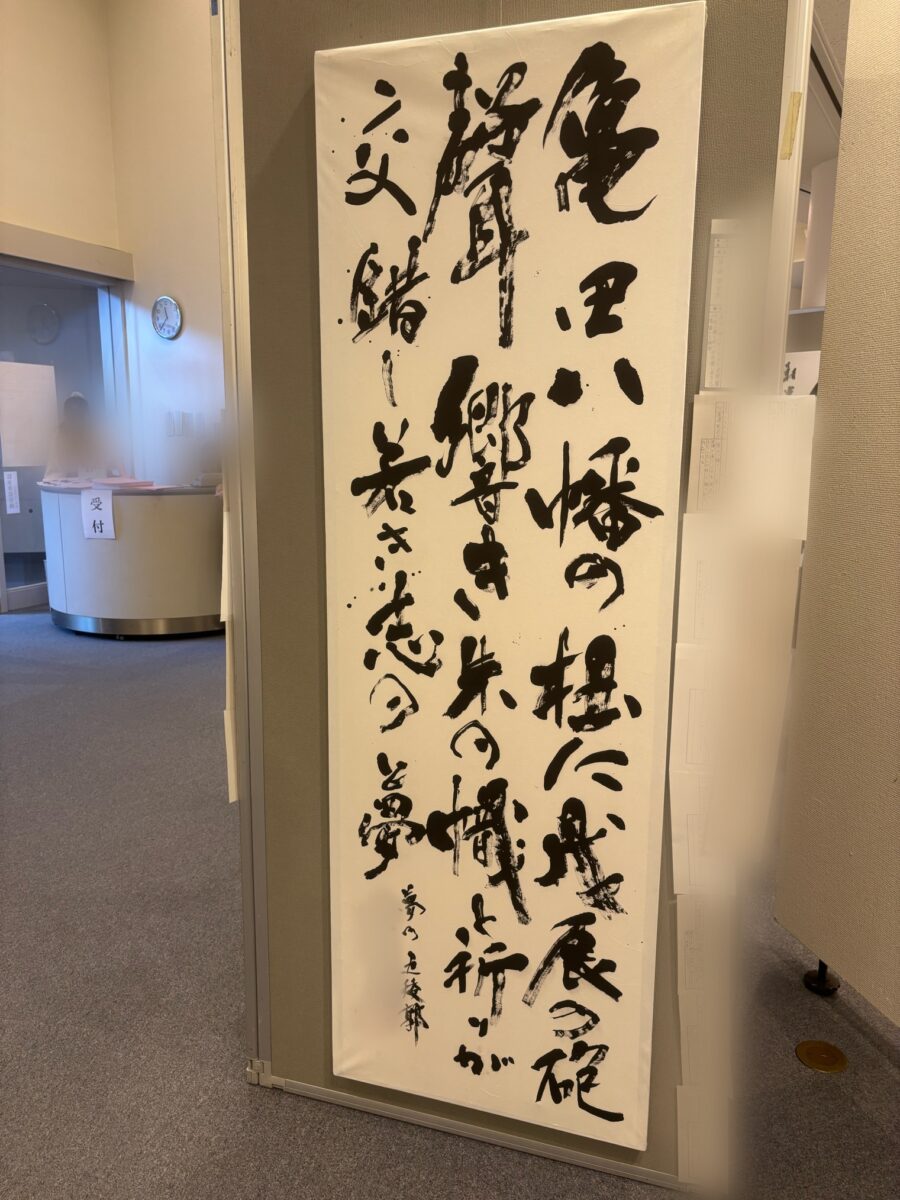 亀田八幡の に戊辰の砲
聲響き朱の幟と祈りが
交錯し若き志の夢
夢の五稜郭
受付